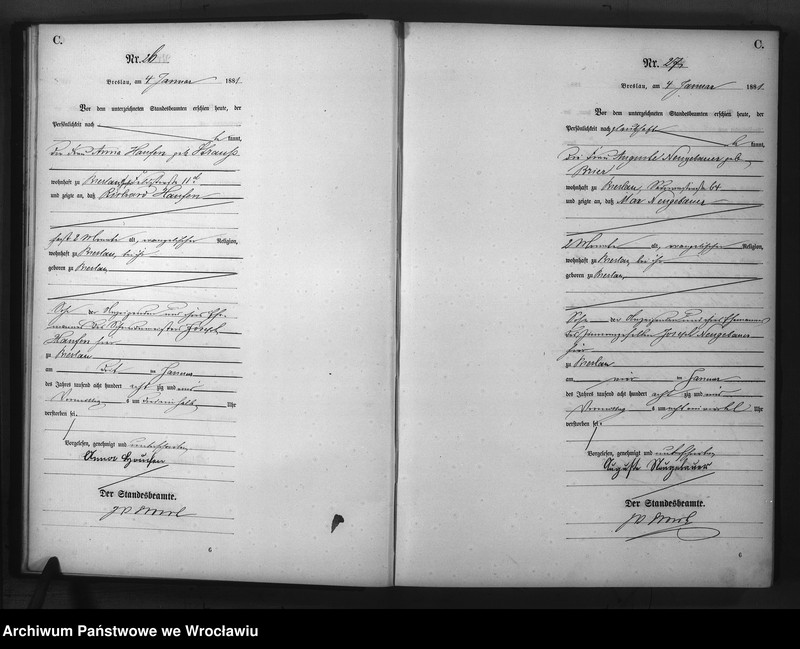 C.
Nr. 26
Breslau, am 4 Januar 1881
Vor dem unterzeichneten Standesbeamten erschien heute, der
Persönlichkeit nach
kannt,
Die Frau Anna Hansen geb. Strauss
wohnhaft zu Breslau, 11
und zeigte an, daß Richard Hansen
fast 2 Monate alt, evangelischer Religion,
wohnhaft zu Breslau, bei ihr
geboren zu Breslau,
Sohn der Anzeigenden und ihres Ehe-
mannes des Joseph
Hansen hier
zu Breslau
am im Januar
des Jahres tausend acht hundert acht zig und eins
Vormittag s um Uhr
verstorben sei.
Vorgelesen, genehmigt und unterschrieben
Anna Hansen
Der Standesbeamte.
6
C.
Nr. 27
Breslau, am 4 Januar 1881
Vor dem unterzeichneten Standesbeamten erschien heute, der
Persönlichkeit nach glaubhaft
be kannt,
Die Frau Auguste Neugebauer geb.
Brier
wohnhaft zu Breslau, 64
und zeigte an, daß Max Neugebauer
2 Monate alt, evangelischer Religion,
wohnhaft zu Breslau, bei ihr
geboren zu Breslau,
Sohn der Anzeigenden und ihres Ehemannes
des Joseph Neugebauer
hier
zu Breslau
am vier im Januar
des Jahres tausend acht hundert acht zig und eins
Vormittag s um acht ein viertel Uhr
verstorben sei.
Vorgelesen, genehmigt und unterschrieben
Auguste Neugebauer
Der Standesbeamte.
6
Archiwum Państwowe we Wrocławiu